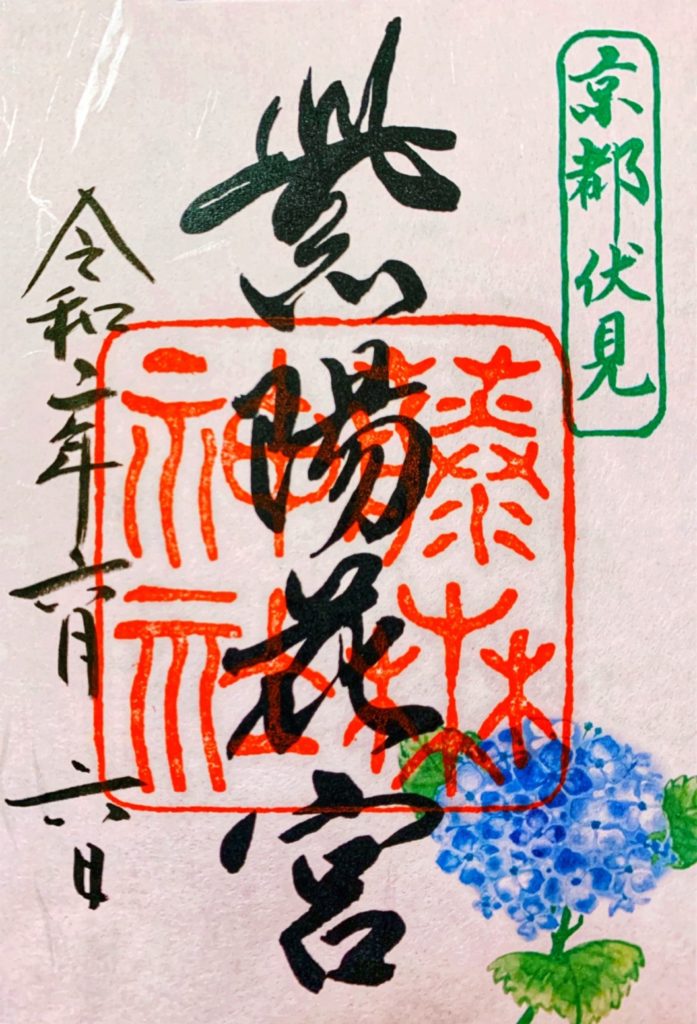 京都伏見
紫陽花宮
藤森神社
令和二年六月六日